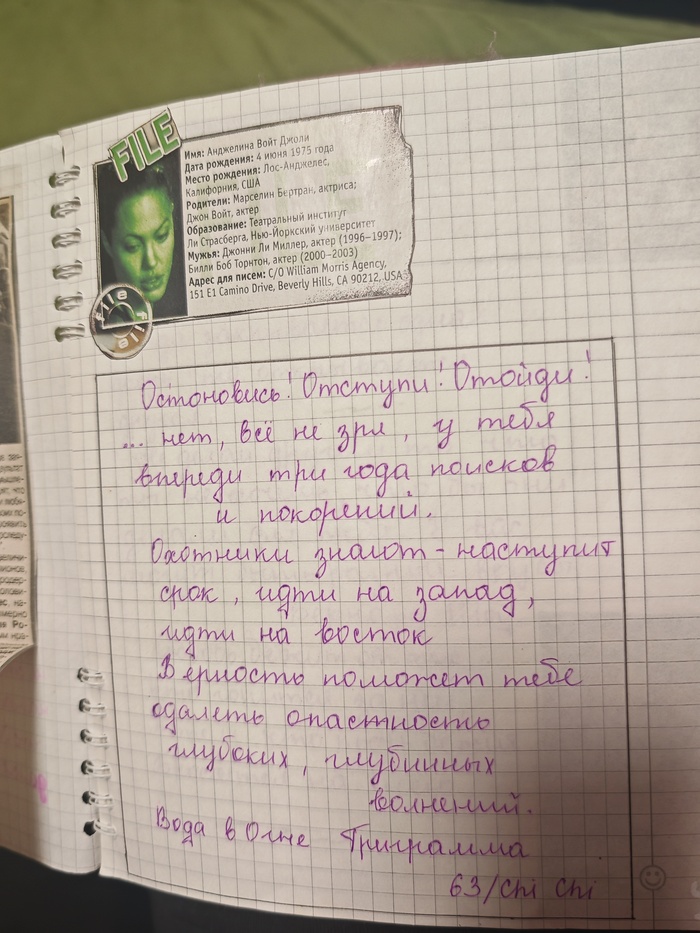 FILE
Имя: Анджелина Войт Джоли
Дата рождения: 4 июня 1975 года
Место рождения: Лос-Анджелес,
Калифорния, США
Родители: Марселин Бертран, актриса;
Джон Войт, актер
Образование: Театральный институт
Ли Страсберга, Нью-Йоркский университет
Мужья: Джонни Ли Миллер, актер (1996–1997);
Билли Боб Торнтон, актер (2000–2003)
Адрес для писем: C/O William Morris Agency,
151 E1 Camino Drive, Beverly Hills, CA 90212, USA
file
file
Остоновись! Отступи! Отойди!
... нет, всё не зря, у тебя
впереди три года поисков
и покорений.
Охотники знают - наступит
срок, идти на запад,
идти на восток
Верность поможет тебе
одалеть опастность
глубоких, глубинных
волнений.
Вода в Огне Триграмма
63/Chi Chi